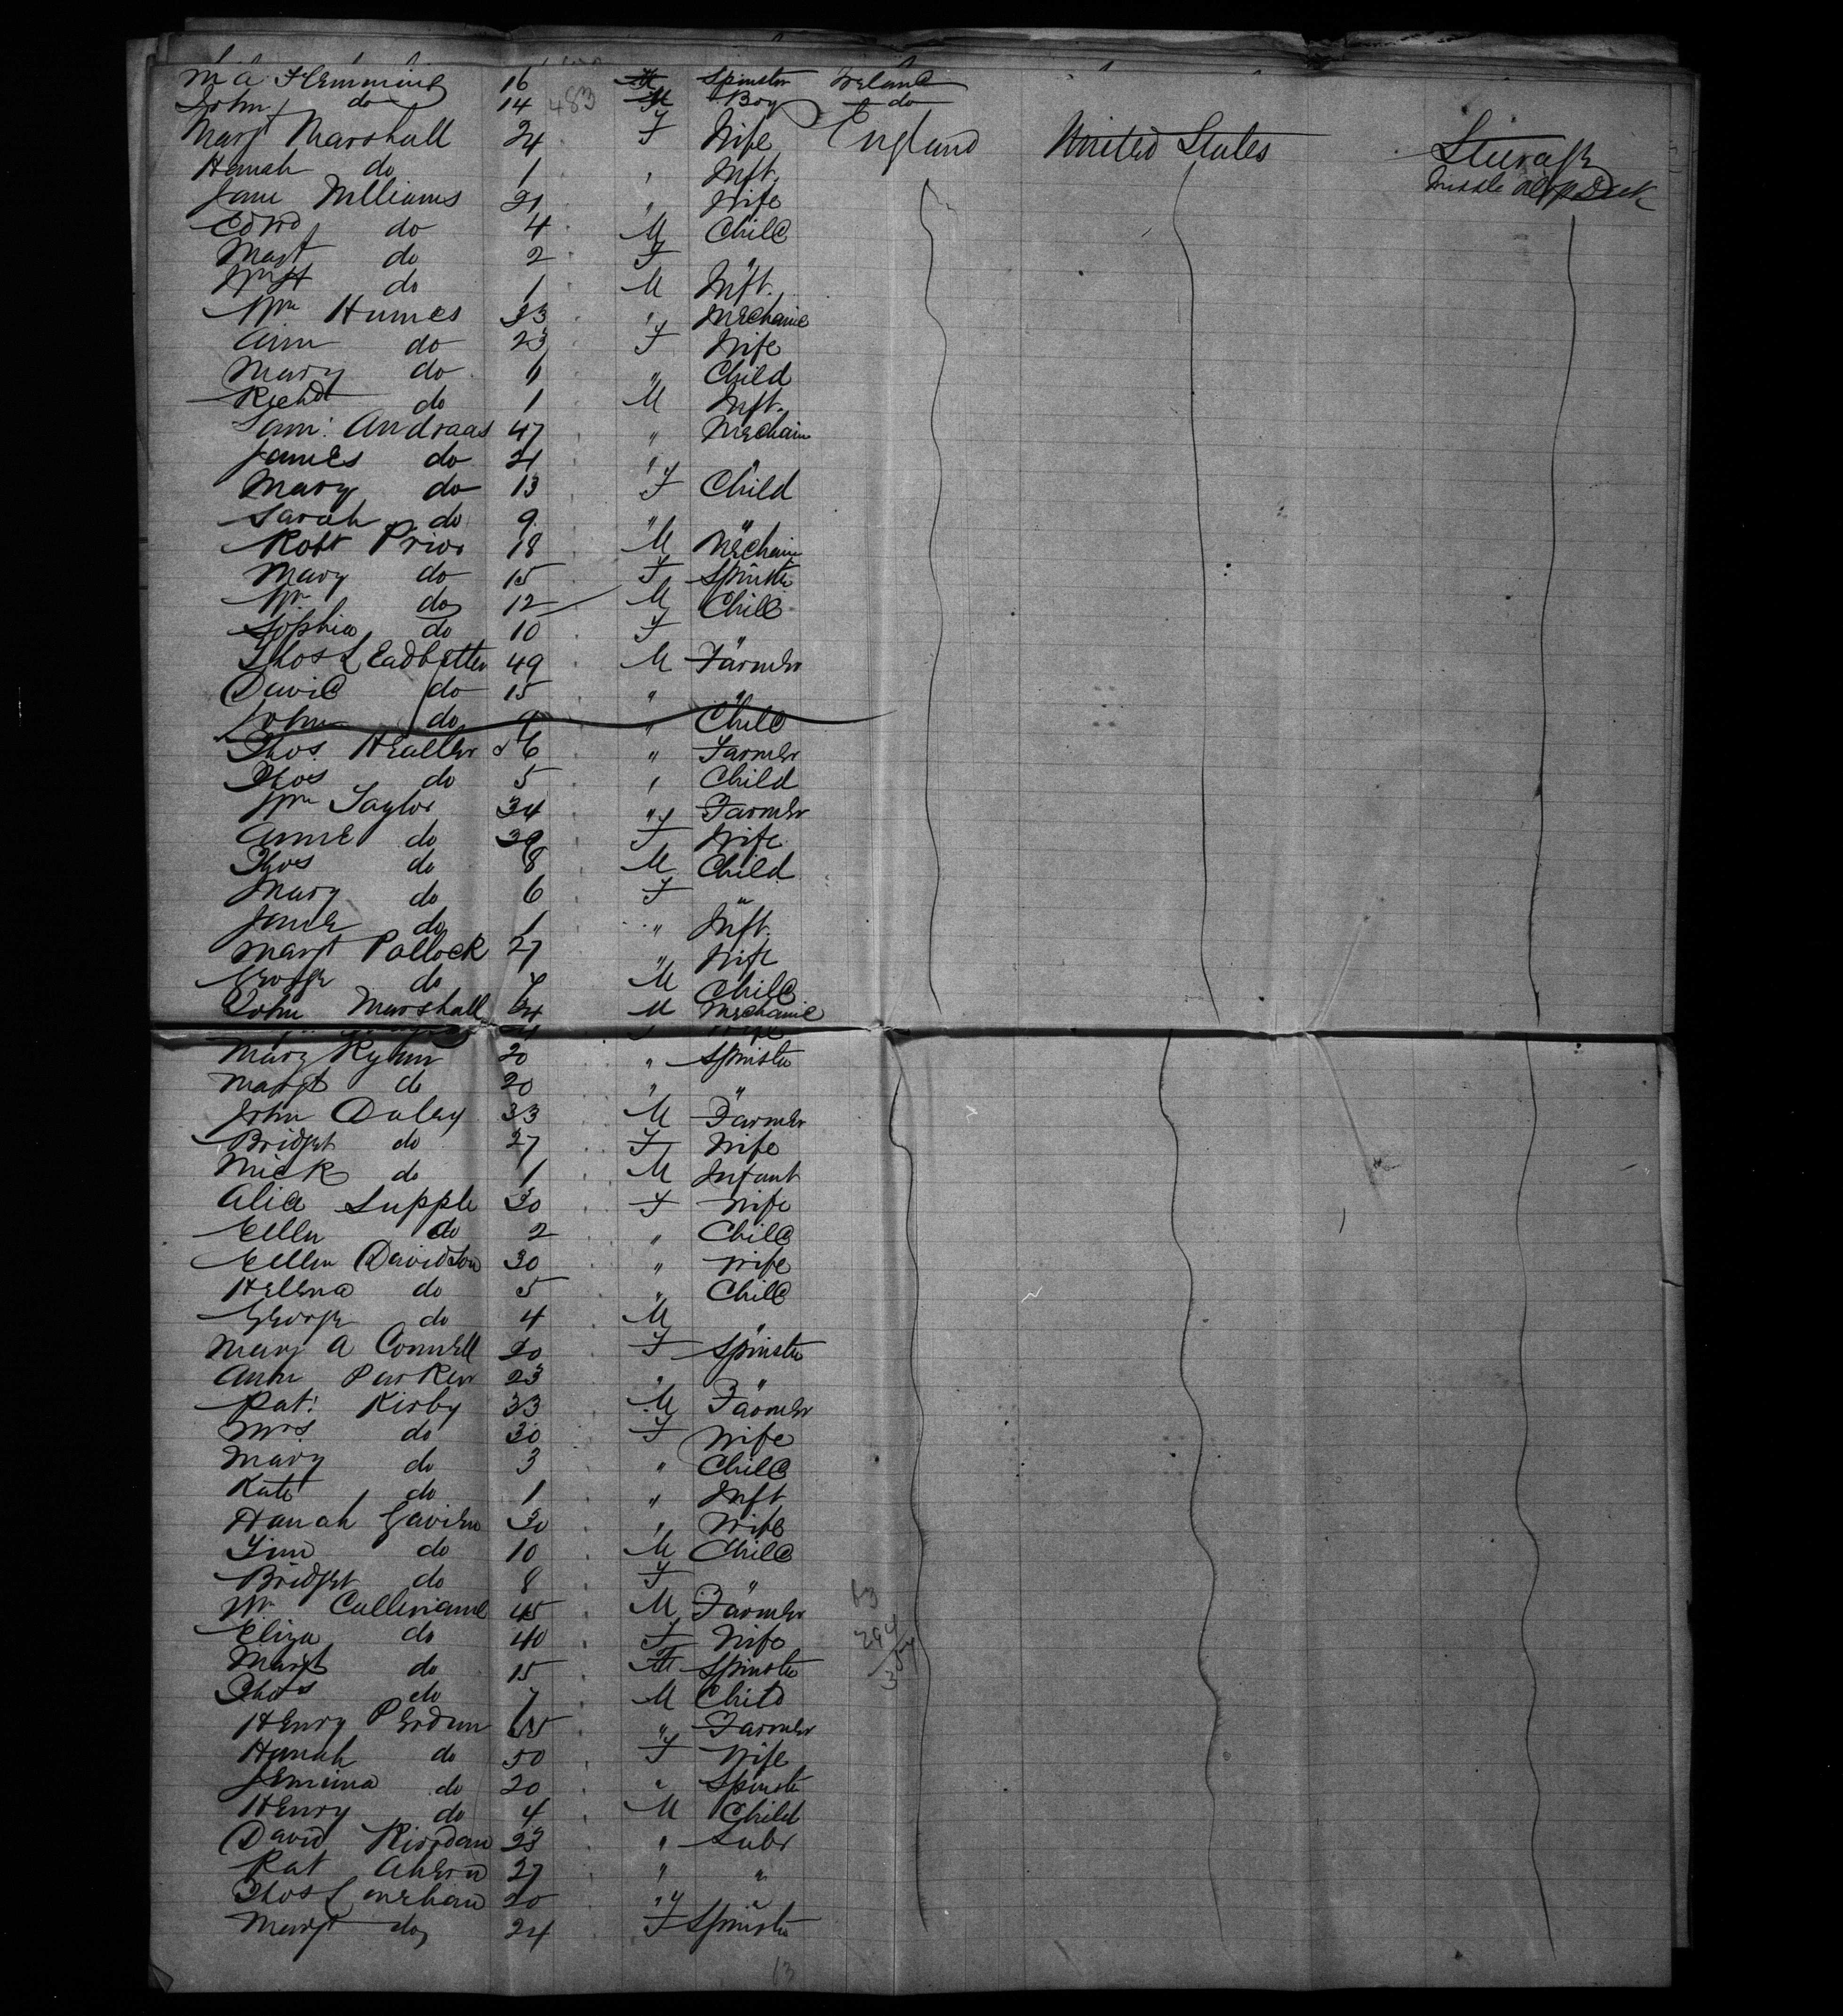 M A Flemming 16 Spinster Ireland
John do 14 483 M Boy do
Margt Marshall 24 F Wife England United States Steerage
Hanah do 1 " Inft. Middle Deck
Jane Williams 21 " Wife
Edwd do 4 M Child
Margt do 2 F "
Wm H do 1 M Inft.
Wm Humes 33 " Mechanic
Ann do 23 F Wife
Mary do 6 " Child
Richd do 1 M Inft.
Sam: Andraas 47 " Mechain
James do 21 " "
Mary do 13 F Child
Sarah do 9 " "
Robt Prior 18 M Mechain
Mary do 15 F Spinster
Wm do 12 M Child
Sophia do 10 F "
Thos Leadbetter 49 M Farmer
David do 15 " "
John do 9 " Child
Thos. 26 " Farmer
Thos do 5 " Child
Wm Taylor 34 " Farmer
Anne do 39 F Wife
Thos do 8 M Child
Mary do 6 F "
Jane do 1 " Inft.
Margt Pollock 27 " Wife
George do M Child
John Marshall M Mechanic
Mary 20 " Spinster
Margt do 20 " "
John Daley 33 M Farmer
Bridget do 27 F Wife
Mick do 1 M Infant
Alice Supple 30 F Wife
Ellen do 2 " Child
Ellen Davidson 30 " Wife
Helena do 5 " Child
George do 4 M "
Mary A Connell 20 F Spinster
Ann Parker 23 " "
Pat: Kirby 33 M Farmer
Mrs do 30 F Wife
Mary do 3 " Child
Kate do 1 " Inft
Hanah Gavien 30 " Wife
Tim do 10 M Child
Bridget do 8 F "
Wm Cullenane 45 M Farmer 63
Eliza do 40 F Wife 294
Margt do 15 Spinster 357
Thos do 7 M Child
Henry Perdun 55 " Farmer
Hanah do 50 F Wife
Jemima do 20 " Spinster
Henry do 4 M Child
David Riordan 23 " Labr
Pat Ahern 27 " "
Thos Lenehan 20 " "
Margt do 24 F Spinster
63